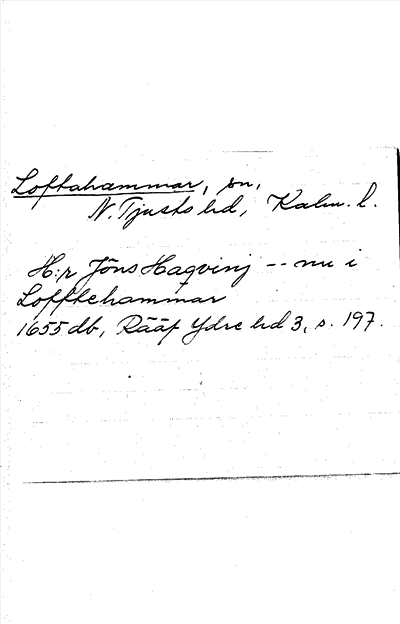 Loftahammar, sn,
N. Tjusts hd, Kalm. l.
H:r Jöns Haqvinj -- nu i
Loffthehammar
1655 db, Rääf Ydre hd 3, s. 197.